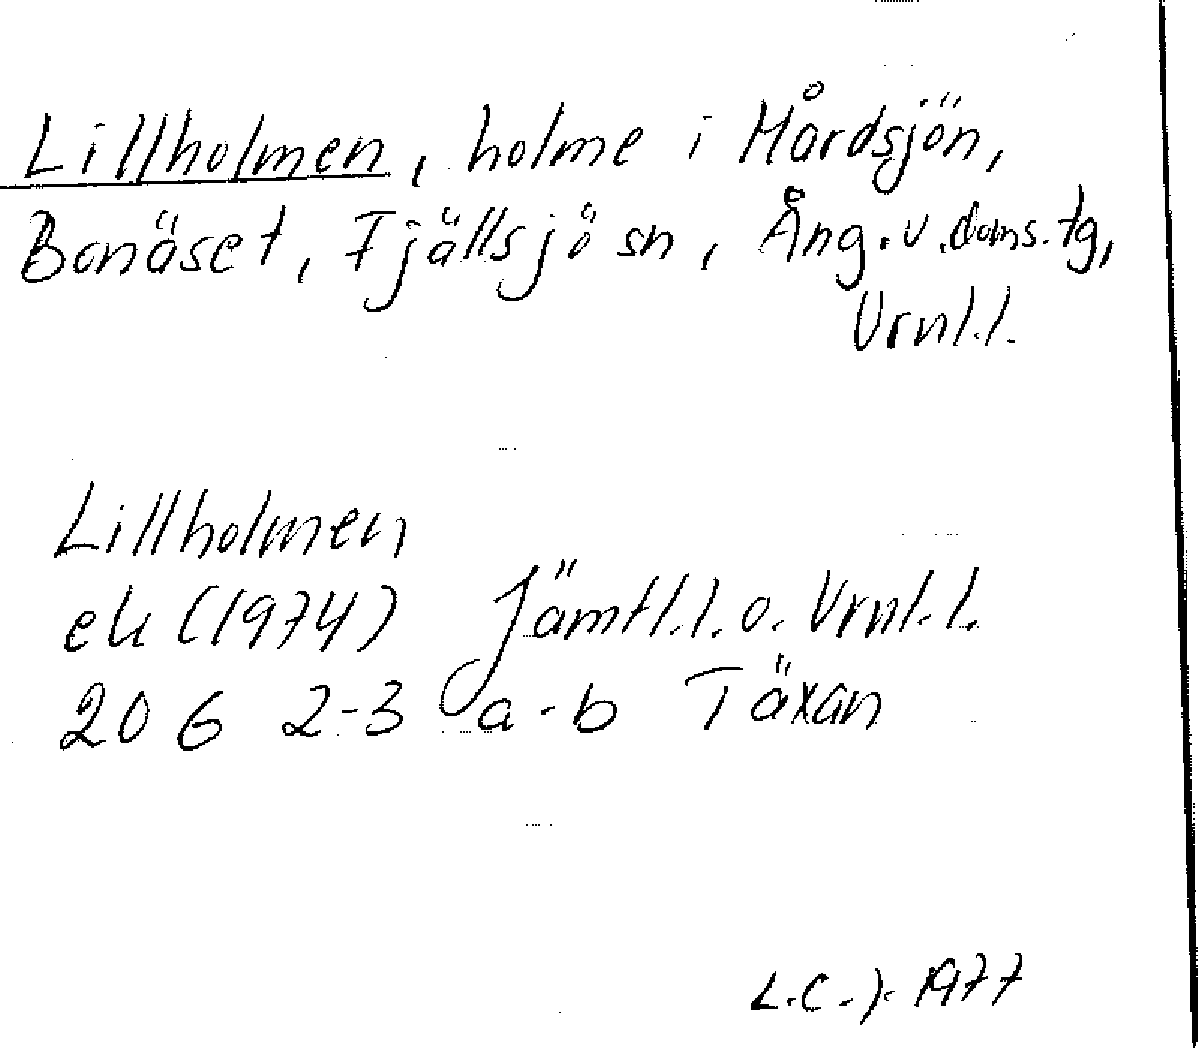 Lillholmen, holme i Hårdsjön,
Bonäset, Fjällsjö sn, Ång. v. doms. tg,
Vrnl.l.
Lillholmen
ek (1974) Jämtl.l. o. Vrnl.l.
20 G 2-3 a-b Täxan
L.C.J. 1977